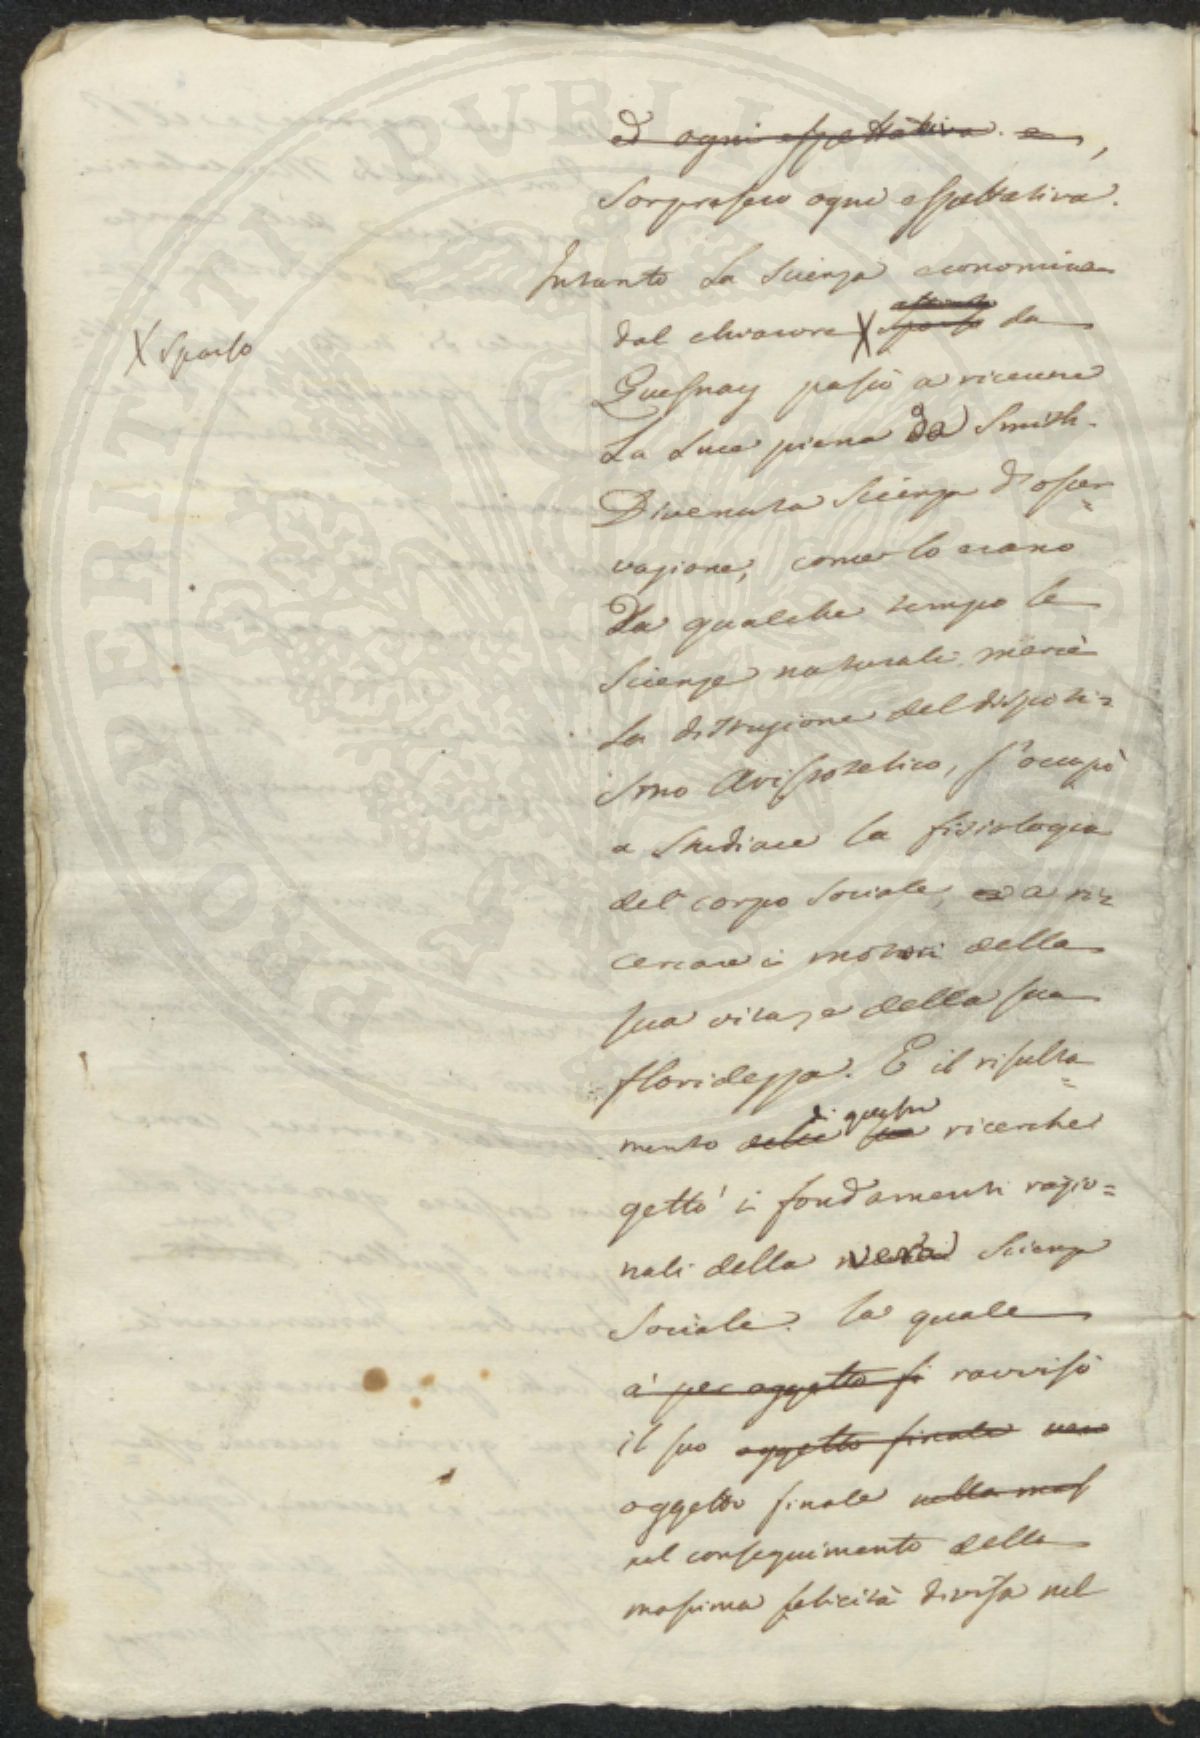 ed ogni espettativa. e,
sorpresero ogni espettativa.
Intanto la scienza economica
dal chiarore X sparso da
X sparso
Quesnay passò a ricevere
la luce piena da Smith.
Divenuta scienza d'osser=
vazione, come lo erano
da qualche tempo le
scienze naturali mercè
la distruzione del dispoti=
smo Aristotelico, s'occupò
a studiare la fisiologia
del corpo sociale, ed a ri=
cercare i motori della
sua vita, e della sua
floridezza. E il risulta=
di queste
mento delle sue ricerche
gettò i fondamenti razio=
nali della vera Scienza
Sociale. la quale
à per oggetto si ravvisò
il suo oggetto finale vero
oggetto finale nella mas
nel conseguimento della
massima felicità divisa nel
PROSPERITATI PVBLICAE